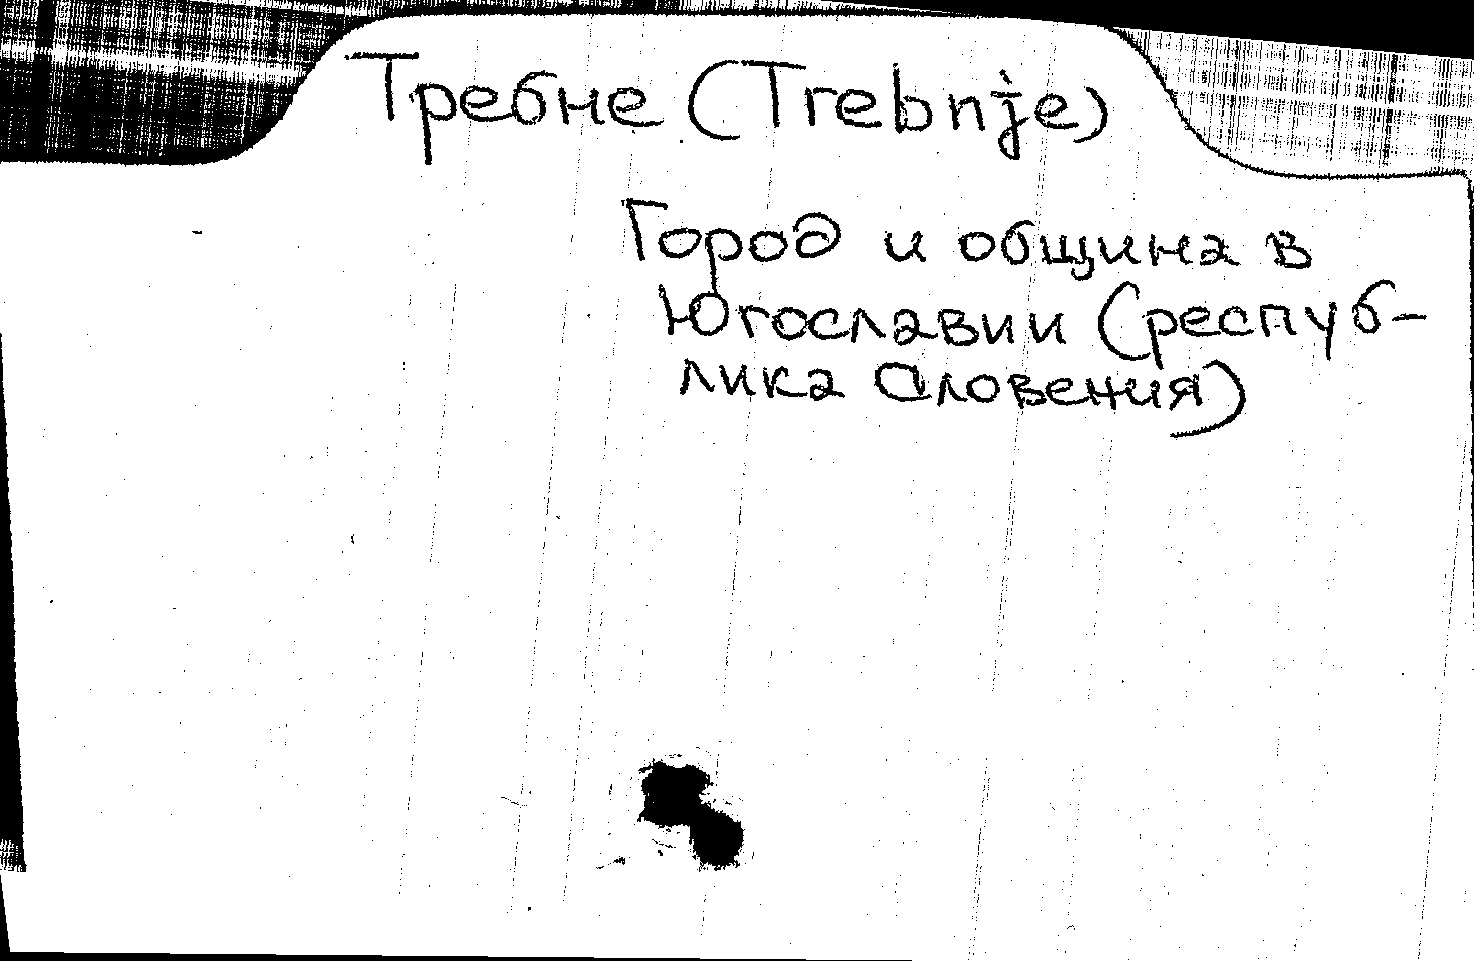 Требне (Trebnje)
Город и община в
Югославии (респуб-
лика Словения)